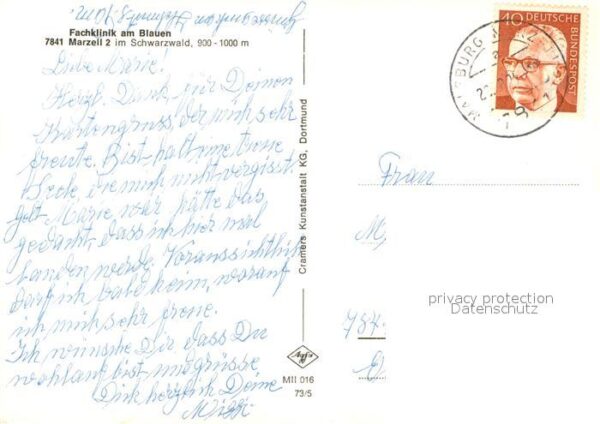 Fachklinik am Blauen
7841 Marzell 2 im Schwarzwald, 900 - 1000 m
Liebe Marie!
Herzl. Dank für Deinen
Kartengruss der mich sehr
freute. Bist halt eine treue
Seele, die mich nicht vergisst.
Gelt Marie, wer hätte das
gedacht, dass ich hier mal
landen werde. Voraussichtlich
darf ich bald heim, worauf
ich mich sehr freue.
Ich wünsche Dir dass Du
wohlauf bist und grüsse
Dich herzlich Deine
Cramers Kunstanstalt KG, Dortmund
MII 016
73/5
40 DEUTSCHE
BUNDESPOST
Frau
M
787
privacy protection
Datenschutz